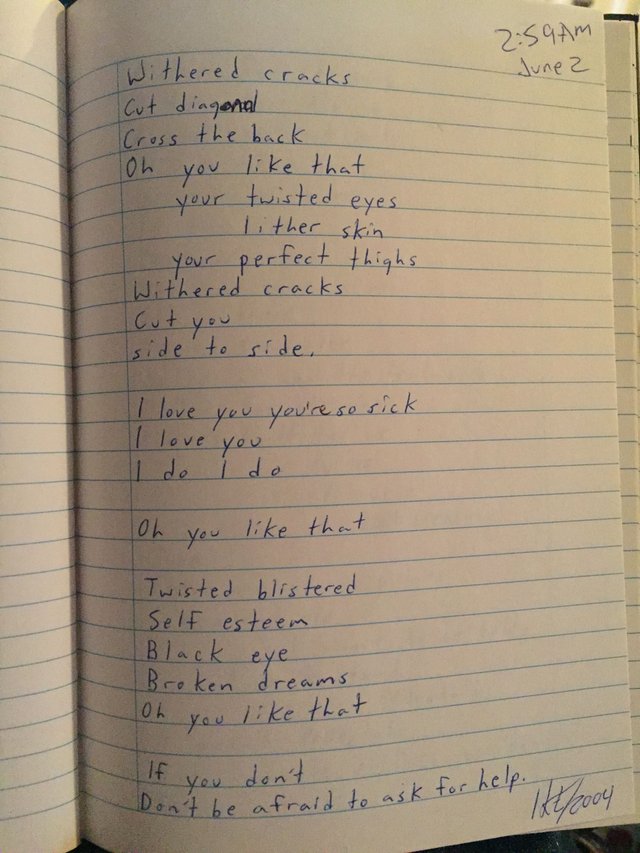 2:59AM
June 2
Withered cracks
Cut diagonal
Cross the back
Oh you like that
your twisted eyes
lither skin
your perfect thighs
Withered cracks
Cut you
side to side.
I love you you're so sick
I love you
I do I do
Oh you like that
Twisted blistered
Self esteem
Black eye
Broken dreams
Oh you like that
If you don't
Don't be afraid to ask for help.
/2004